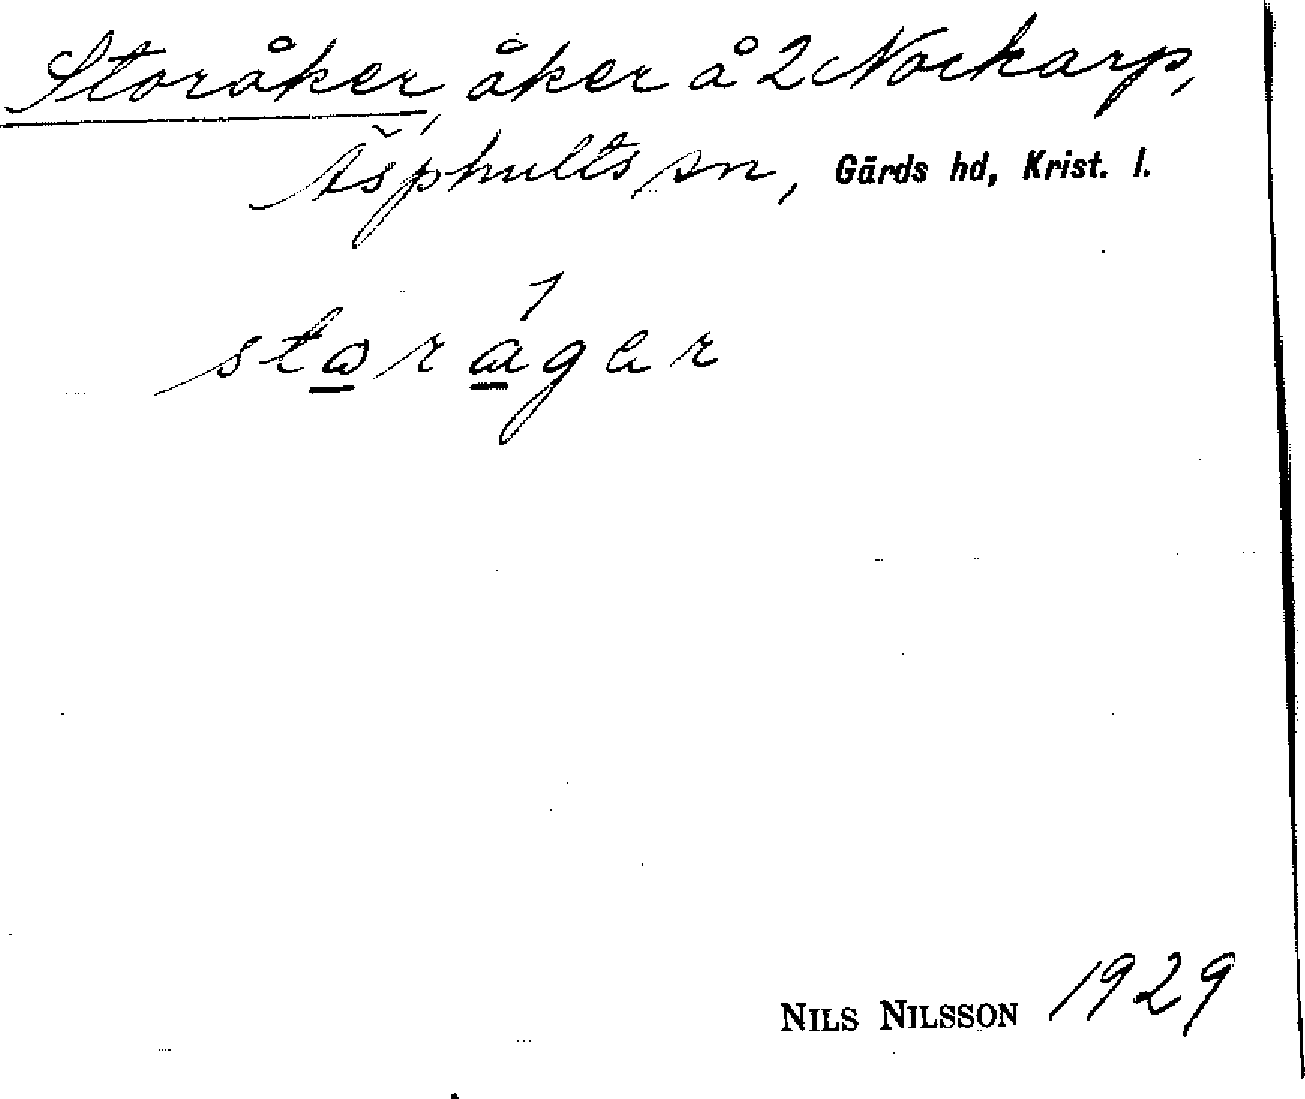 Storåker, åker å 2 Nockarp,
Äsphults sn, Gärds hd, Krist. l.
storáger
NILS NILSSON 1929